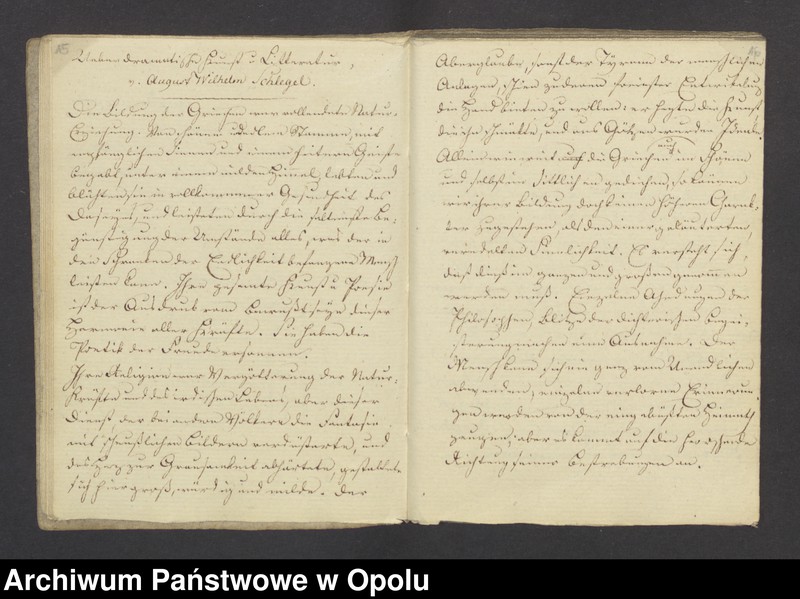 15
Ueber dramatische Kunst u Litteratur,
v. August Wilhelm Schlegel.
Die Bildung der Griechen war vollendete Natur-
Erziehung. Von schönem und edlem Stamme, mit
empfänglichen Sinnen und einem heitern Geiste
begabt, unter einem milden Himel, lebten und
blühten sie in vollkommener Gesundheit des
Daseyns, und leisteten durch die seltenste Be-
günstigung der Umstände alles, was der in
den Schranken der Endlichkeit befangene Mensch
leisten kann. Ihre gesamte Kunst u Poesie
ist der Ausdruck vom Bewußtseyn dieser
Harmonie aller Kräfte. Sie haben die
Poetik der Freude ersonnen.
Ihre Religion war Vergötterung der Natur-
Kräfte und des irdischen Lebens, aber dieser
Dienst der bei andern Völkern die Fantasie
mit scheußlichen Bildern verdüsterte, und
das Herz zur Grausamkeit abhärtete, gestaltete
sich hier groß, würdig und milde. Der
Aberglaube, sonst der Tyrann der menschlichen
Anlagen, schien zu deren freiester Entwickelung
die Hand bieten zu wollen: er hegte die Kunst
die ihn schmückte, und aus Götzen wurden Ideale.
Allein wie weit auch die Griechen im Schönen
und selbst im Sittlichen gediehen, so können
wir ihrer Bildung doch keinen höhern Charak-
ter zugestehen, als den einer geläuterten,
veredelten Sinnlichkeit. Es versteht sich,
daß dieß im ganzen und großen genommen
werden muß. Einzelne Ahndungen der
Philosophen, Blitze der dichterischen Begei-
sterung machen eine Ausnahme. Der
Mensch kann sich nie ganz vom Unendlichen
abwenden, einzelne verlorne Erinnerun-
gen werden von der eingebüßten Heimath
zeugen; aber es kommt auf die herrschende
Richtung seiner Bestrebungen an.
Archiwum Państwowe w Opolu